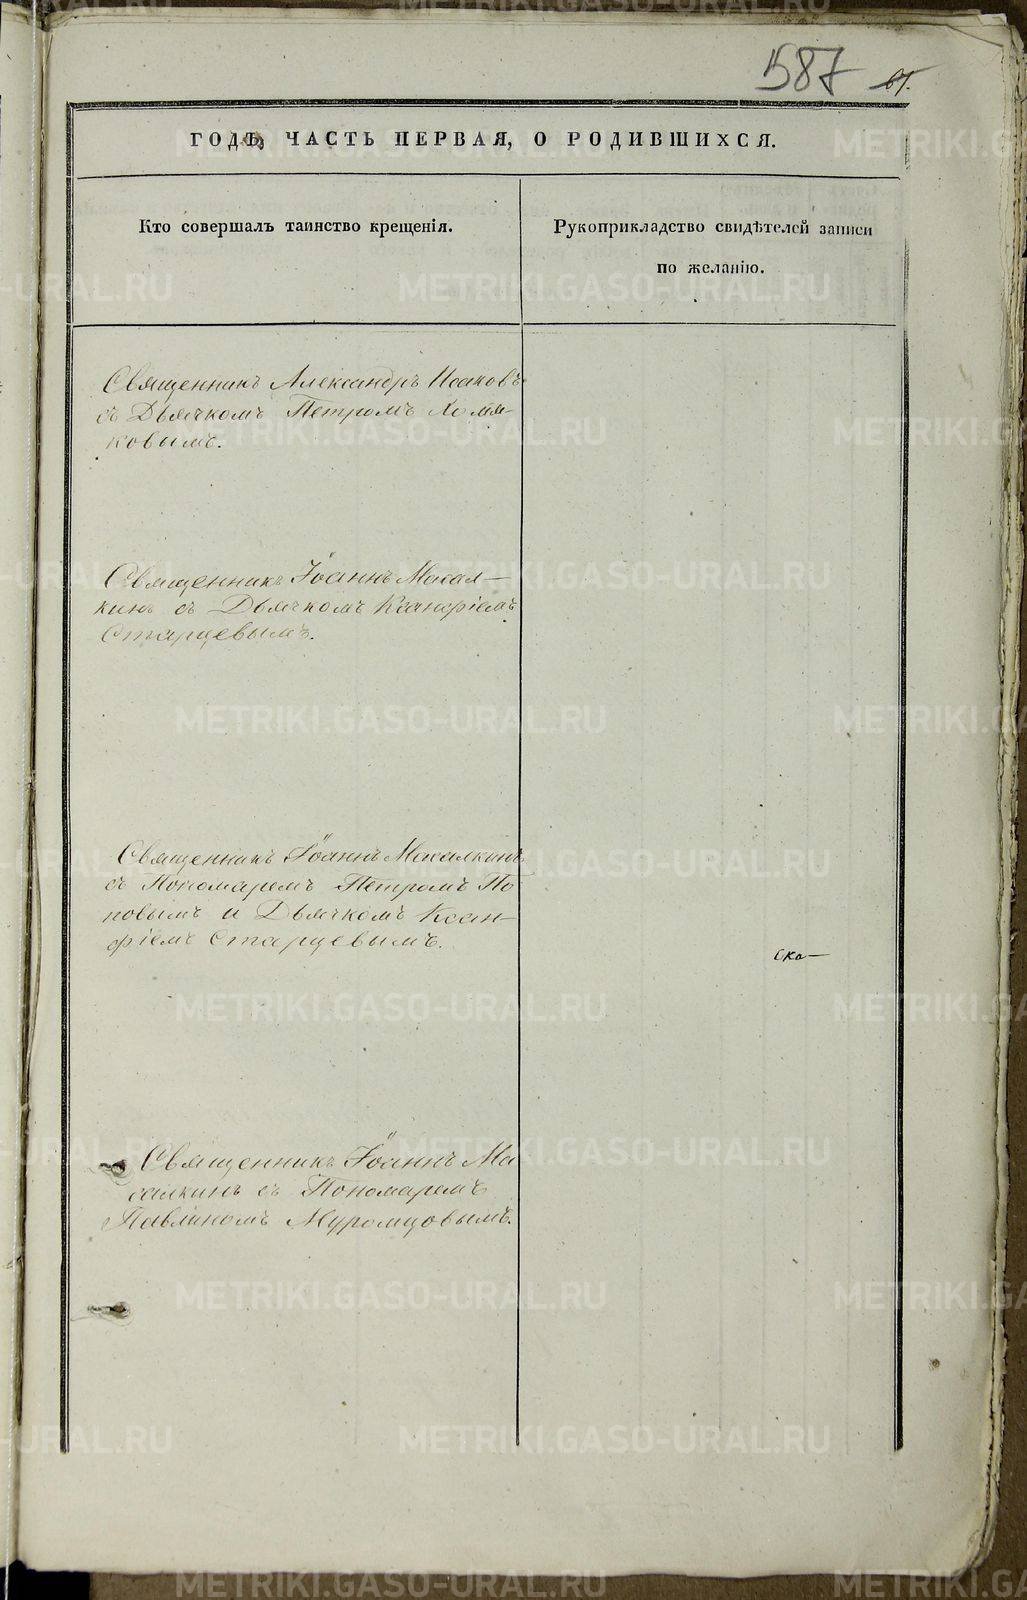 587
ГОДѢ, ЧАСТЬ ПЕРВАЯ, О РОДИВШИХСЯ.
Кто совершалъ таинство крещенія.
Рукоприкладство свидѣтелей записи
по желанію.
Священникъ Александръ Исаковъ
съ Дьячкомъ Петромъ Хомя-
ковымъ.
Священникъ Іоаннъ Масал-
кинъ съ Дьячкомъ Ксанфіемъ
Старцевымъ.
Священникъ Іоаннъ Масалкинъ
съ Пономаремъ Петромъ По
повымъ и Дьячкомъ Ксан-
фіемъ Старцевымъ.
Ско-
Священникъ Іоаннъ Ма
салкинъ съ Пономаремъ
Павлиномъ Муромцовымъ.
METRIKI.GASO-URAL.RU